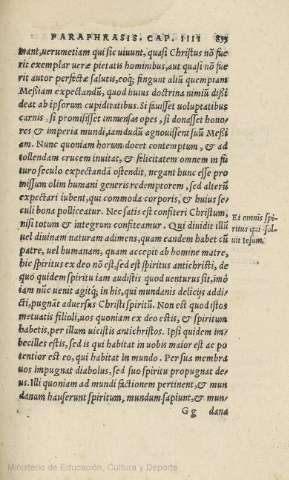 PARAPHRASIS. CAP. IIII 835
mant, uerumetiam qui sic uiuunt, quasi Christus nõ fue
rit exemplar uerae pietatis hominibus, aut quasi nõ fue
rit autor perfectae salutis, eoq; fingunt aliũ quempiam
Messiam expectandũ, quod huius doctrina nimiũ dissi
deat ab ipsorum cupiditatibus. Si fuisset uoluptatibus
carnis, si promisisset immensas opes, si donasset hono-
res & imperia mundi, iamdudũ agnouissent suũ Messi
am. Nunc quoniam horum docet contemptum, & ad
tollendam crucem inuitat, & felicitatem omnem in fu
turo seculo expectandã ostendit, negant hunc esse pro
missum olim humani generis redemptorem, sed alterũ
expectari iubent, qui commoda corporis, & huius se-
culi bona polliceatur. Nec satis est confiteri Christum,
nisi totum & integrum confiteamur. Qui diuidit illũ
uel diuinam naturam adimens, quam eandem habet cũ
patre, uel humanam, quam accepit ab homine matre,
hic spiritus ex deo nõ est, sed est spiritus antichristi, de
quo quidem spiritu iam audistis quod uenturus sit, imò
iam nũc uenit agitq; in his, qui mundanis delicijs addi-
cti, pugnãt aduersus Christi spiritũ. Non est quod istos
metuatis filioli, uos quoniam ex deo estis, & spiritum
habetis, per illum uicistis antichristos. Ipsi quidem im-
becilles estis, sed is qui habitat in uobis maior est ac po
tentior est eo, qui habitat in mundo. Per sua membra
uos impugnat diabolus, sed suo spiritu propugnat de-
us. Illi quoniam ad mundi factionem pertinent, & mun
danum hauserunt spiritum, mundum sapiunt, & mun-
Gg dana
Et omnis spi-
ritus qui sol-
uit iesum.
Ministerio de Educación, Cultura y Deporte